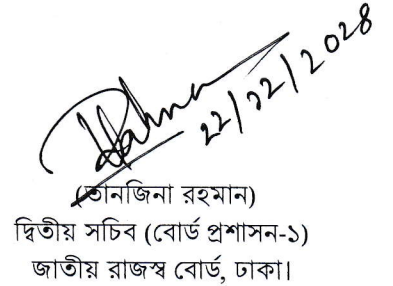 ২২/১২/২০২৪
(তানজিনা রহমান)
দ্বিতীয় সচিব (বোর্ড প্রশাসন-১)
জাতীয় রাজস্ব বোর্ড, ঢাকা।